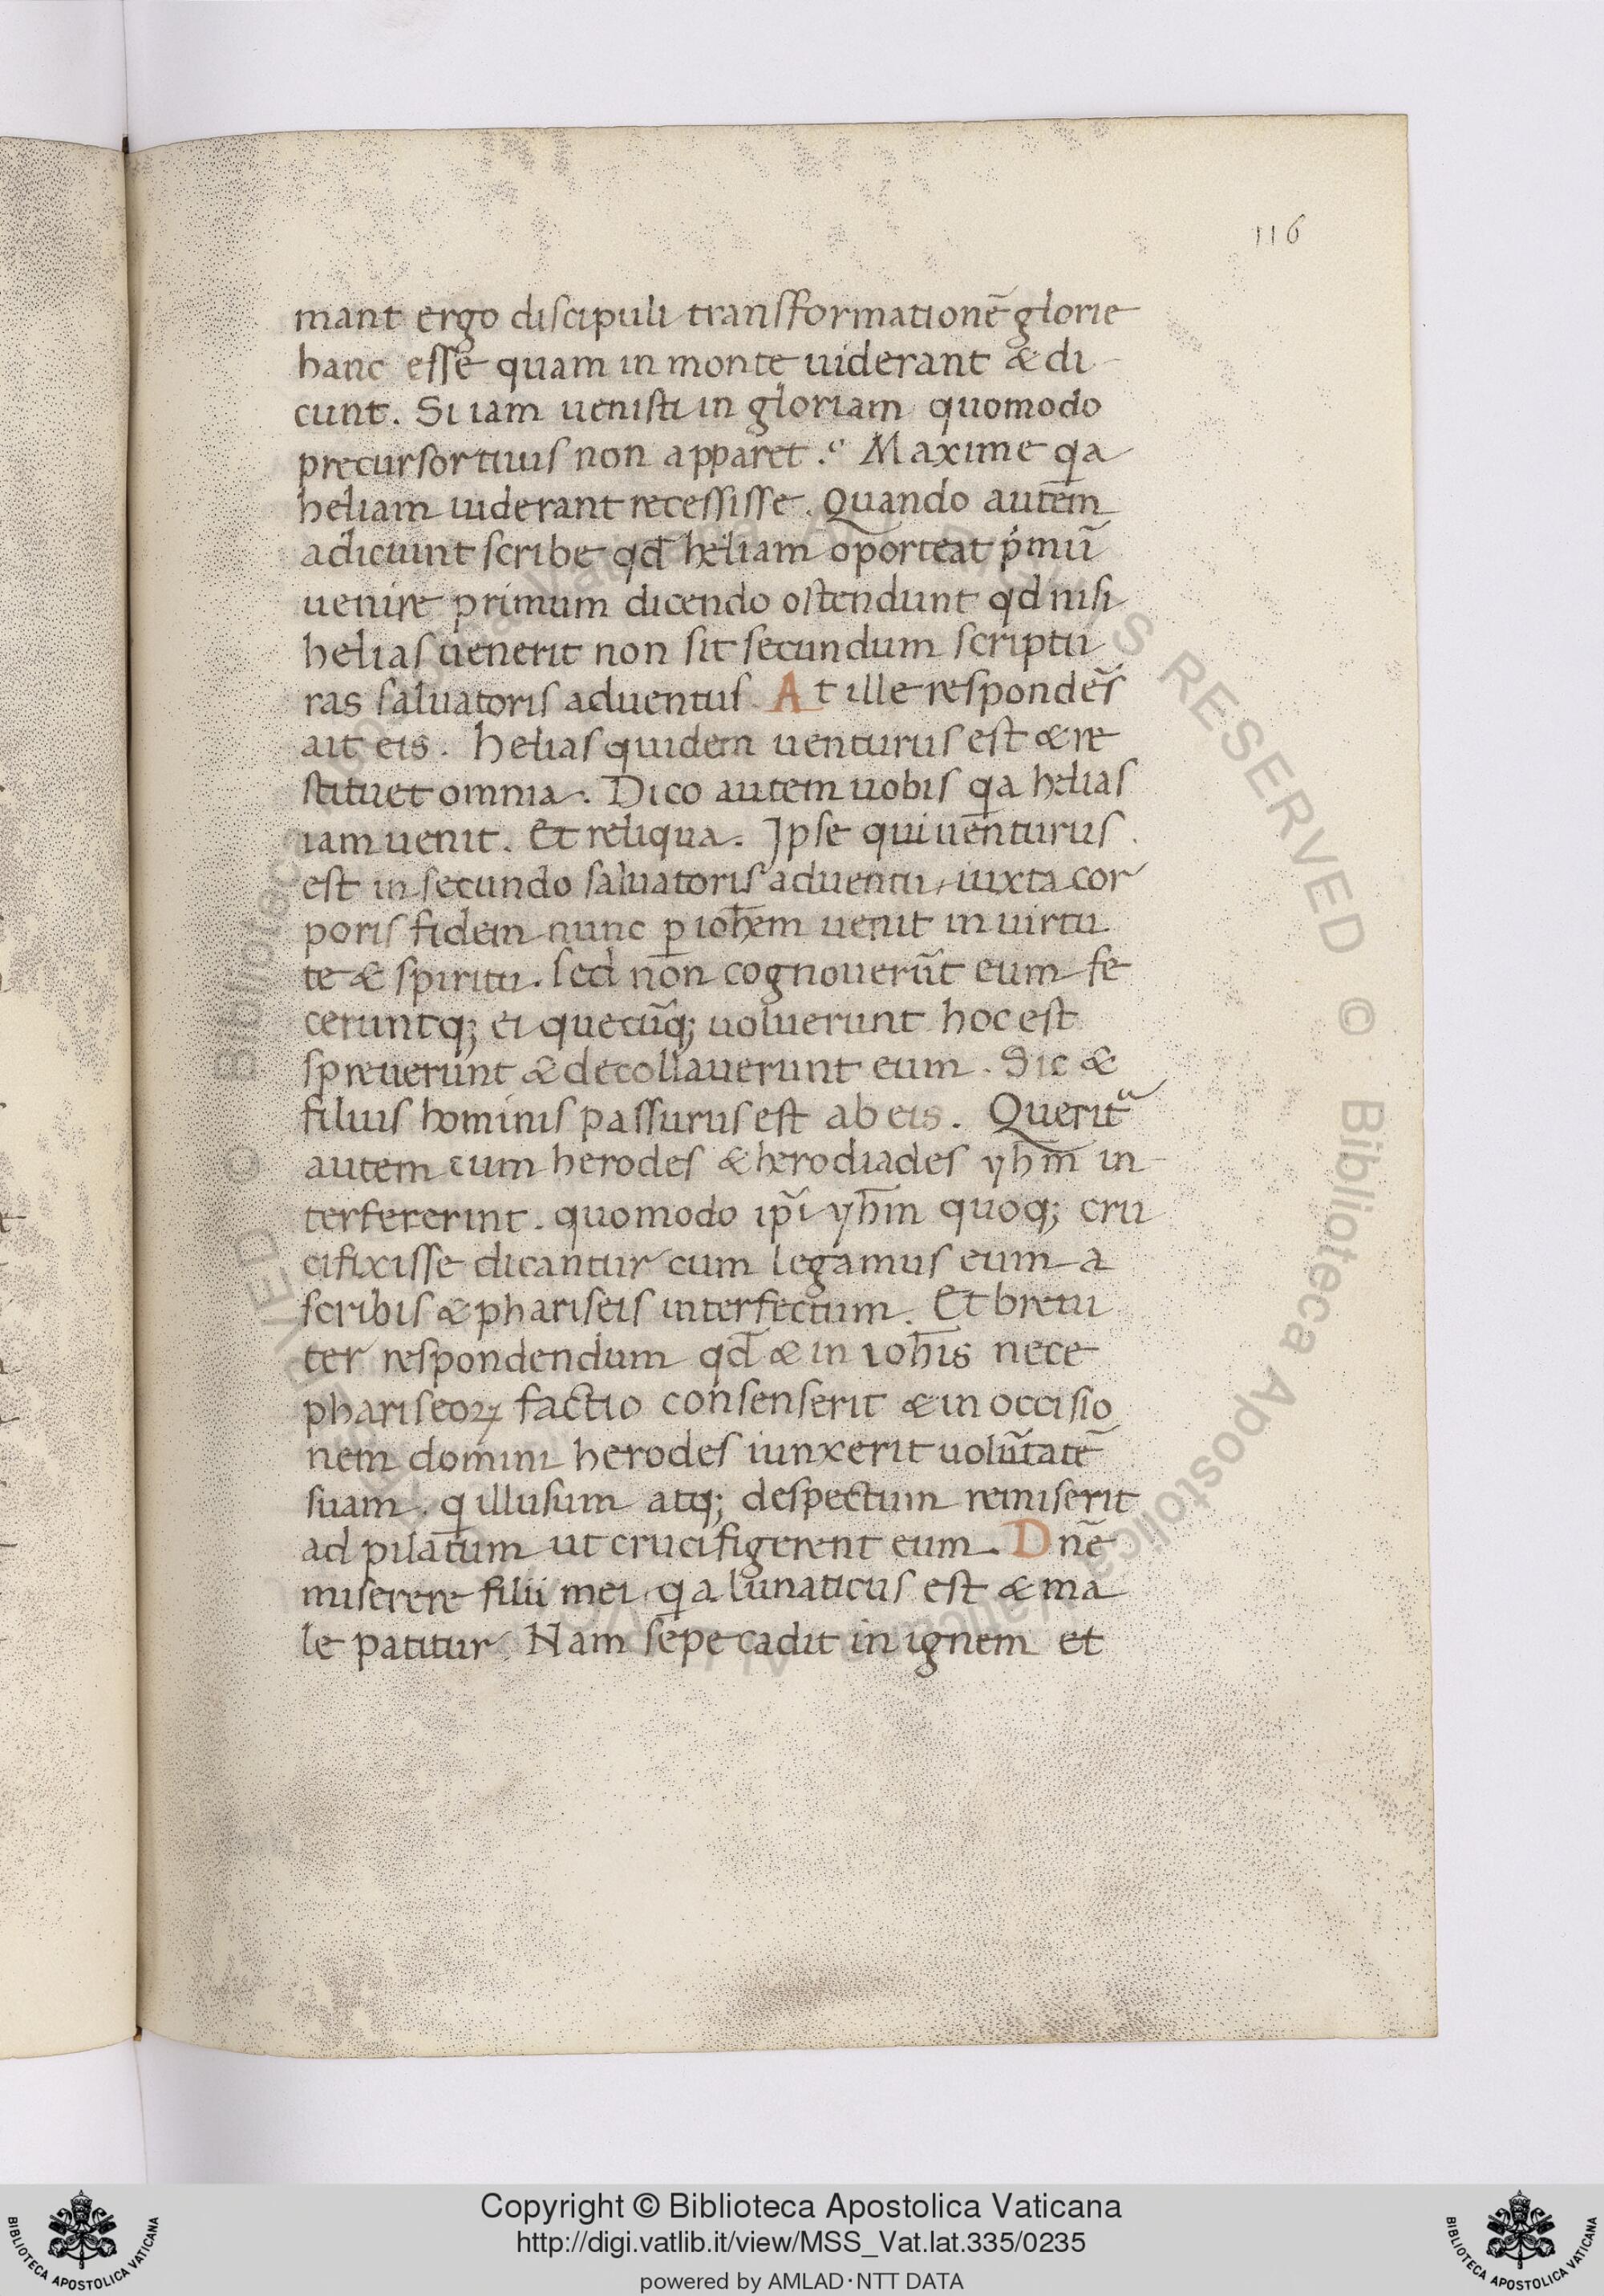 116
mant ergo discipuli transformationē glorie
hanc esse quam in monte uiderant & di
cunt. Si iam uenisti in gloriam quomodo
precursor tuus non apparet. Maxime qa
heliam uiderant recessisse. Quando autem
adiciunt scribe qđ heliam oporteat pͥmū
uenire primum dicendo ostendunt qd nisi
helias uenerit non sit secundum scriptu
ras saluatoris aduentus. At ille respondēs
ait eis. helias quidem uenturus est & re
stituet omnia. Dico autem uobis qa helias
iam uenit. Et reliqua. Ipse qui uenturus
est in secundo saluatoris aduentu, iuxta cor
poris fidem nunc ꝑ ioh̄em uenit in uirtu
te & spiritu. sed non cognouerūt eum fe
ceruntq; ei quecūq; uoluerunt hoc est
spreuerunt & decollauerunt eum. Sic &
filius hominis passurus est ab eis. Querit᷑
autem cum herodes & herodiades yh̄m in
terfererint. quomodo ip̄i yh̄m quoq; cru
cifixisse dicantur cum legamus eum a
scribis & phariseis interfectum. Et breui
ter respondendum qđ & in ioh̄is nece
phariseoꝝ factio consenserit & in occisio
nem domini herodes iunxerit uolūtatē
suam. q illusum atq; despectum remiserit
ad pilatum ut crucifigerent eum. Dnē
miserere filii mei qa lunaticus est & ma
le patitur. Nam sepe cadit in ignem et
© Biblioteca Apostolica Vaticana ALL RIGHTS RESERVED
Copyright © Biblioteca Apostolica Vaticana
http://digi.vatlib.it/view/MSS_Vat.lat.335/0235
powered by AMLAD·NTT DATA
BIBLIOTECA APOSTOLICA VATICANA
BIBLIOTECA APOSTOLICA VATICANA